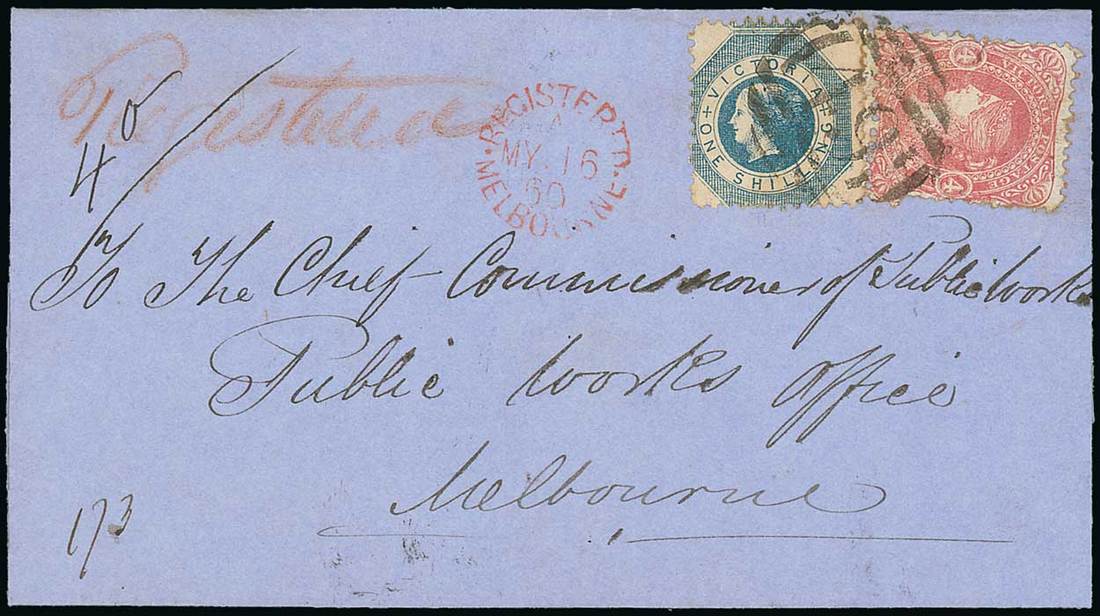 Registered
40
REGISTERED
MY. 16
60
MELBOURNE
+ VICTORIA +
ONE SHILLING
To The Chief Commissioner of Public Works
Public Works Office
Melbourne
173